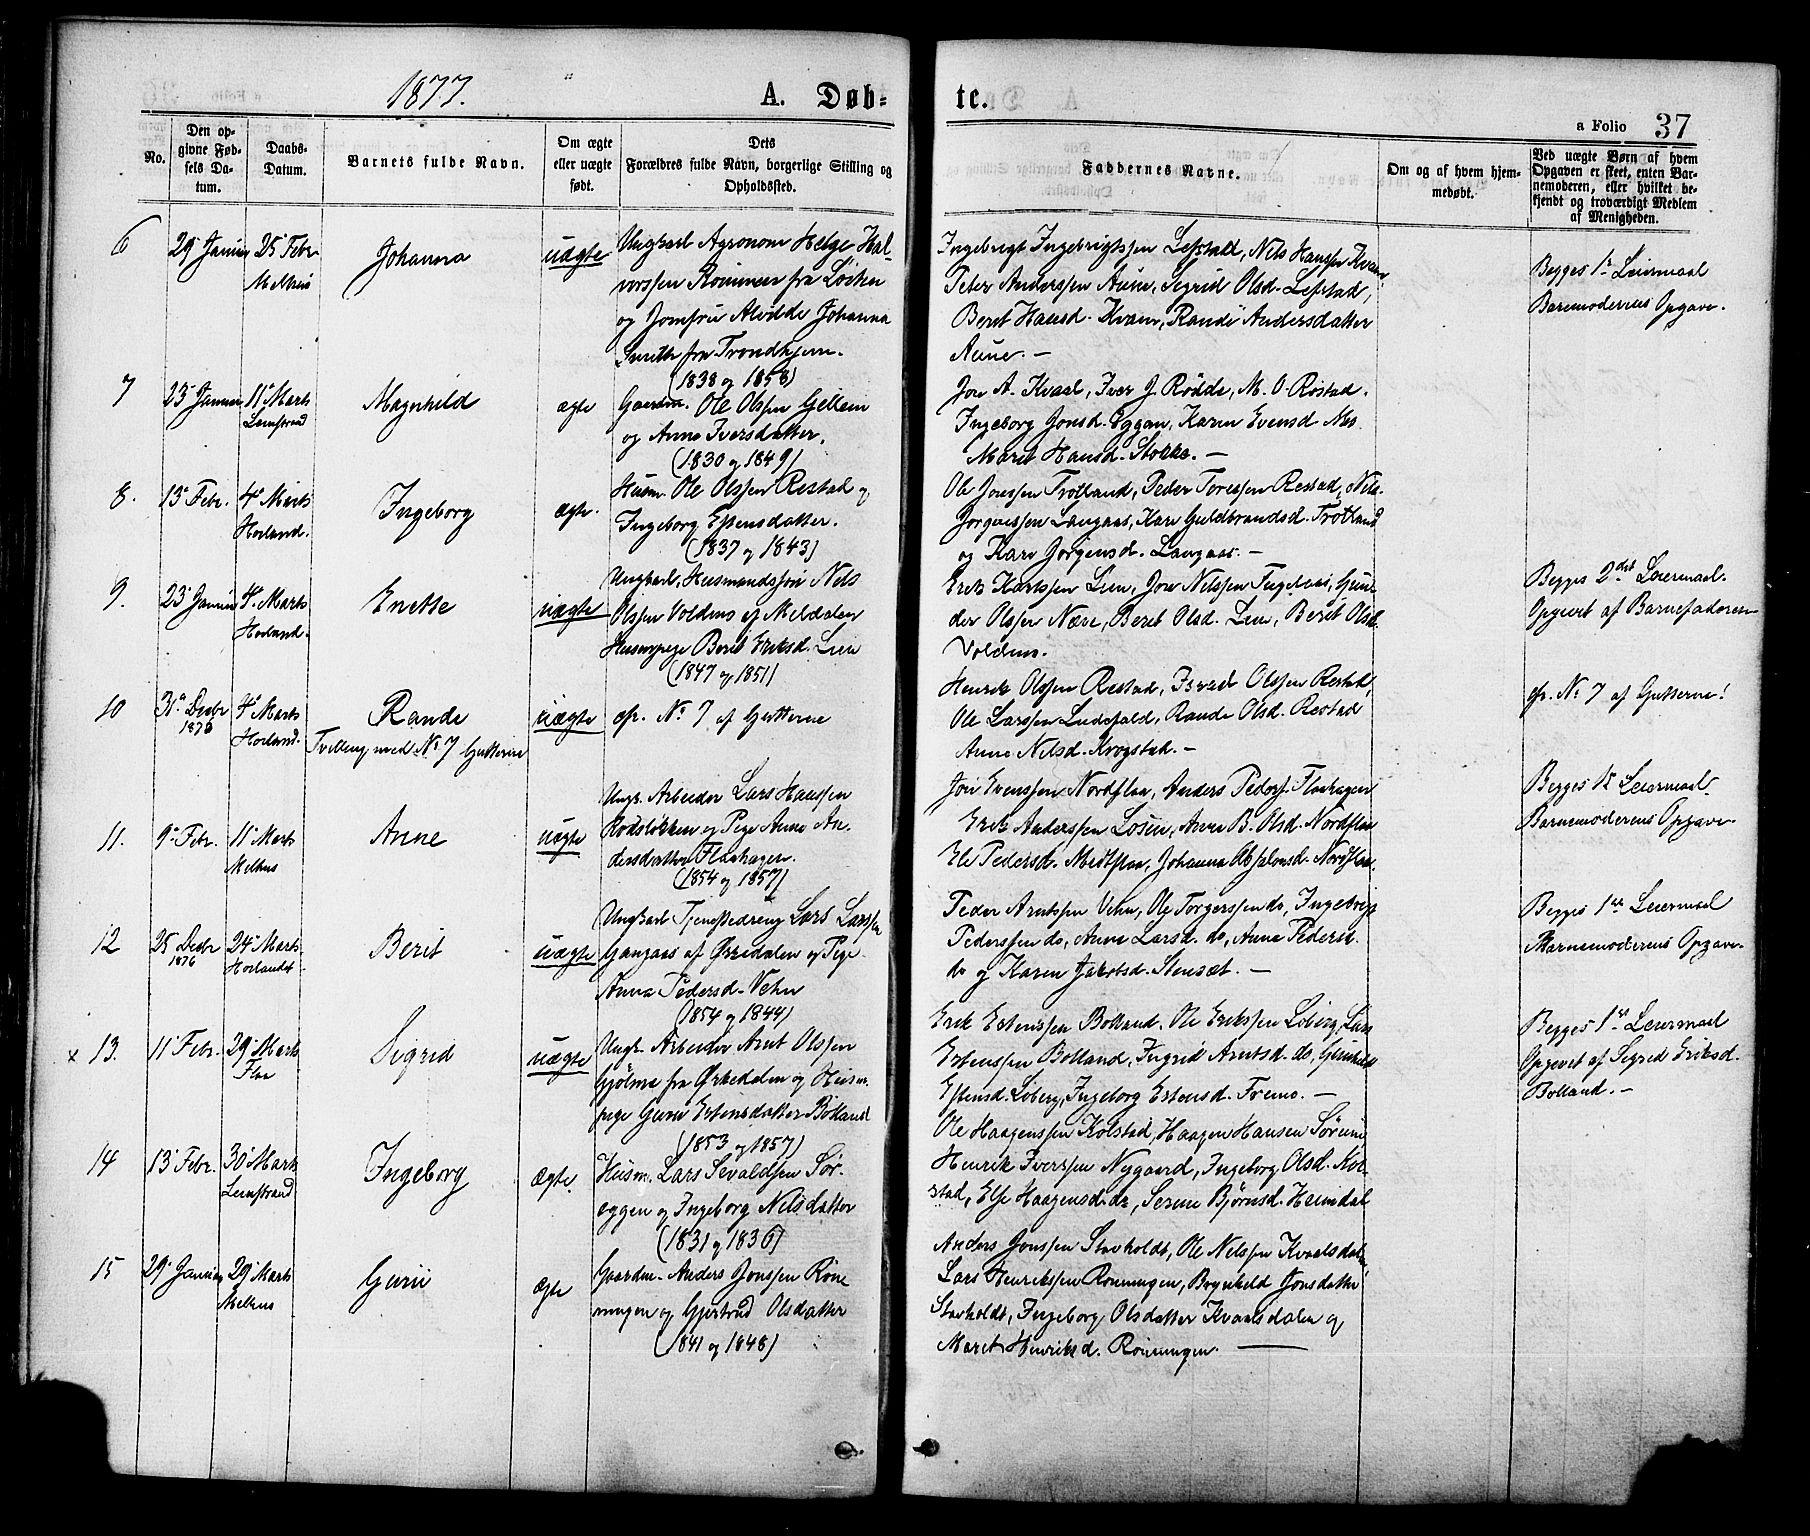 1877.
A. Døb-
te.
a Folio 37
No.
Den op-
givne Fød-
sels Da-
tum.
Daabs-
Datum.
Barnets fulde Navn.
Om ægte
eller uægte
født.
Dets
Forældres fulde Navn, borgerlige Stilling og
Opholdssted.
Faddernes Navne.
Om og af hvem hjem-
medøbt.
Ved uægte Børn af hvem
Opgaven er skeet, enten Bar-
nemoderen, eller hvilket be-
kjendt og troværdigt Medlem
af Menigheden.
6
29 Januar
25 Febr
Melhus
Johanna
uægte
Ungkarl Agronom Helge Hal-
vorssen Rømmen fra Løcken
og Jomfru Alvilde Johanna
Smith fra Trondhjem.
(1838 og 1858)
Ingebrigt Ingebrigtssen Lefstad, Nils Hanssen Kvam,
Peter Anderssen Aune, Sigrid Olsd. Lefstad,
Beret Hansd. Kvam, Rande Andersdatter
Aune. —
Begges 1ste Leiermaal
Barnemoderens Opgave.
7
23 Januar
11 Marts
Leinstrand
Magnhild
ægte
Gaardm. Ole Olssen Gellein
og Anne Iversdatter.
(1830 og 1849)
Jon A. Kvaal, Iver J. Rødde, M. O. Røstad.
Ingeborg Jonsd. Eggan, Karen Evensd Nes
Maret Hansd. Stokke. —
8.
13 Febr.
4 Marts
Horland.
Ingeborg
ægte.
Husm. Ole Olssen Restad og
Ingeborg Estensdatter.
(1837 og 1843)
Ole Jonssen Trotland, Peder Toressen Restad, Nils
Jørgenssen Langaas, Kari Guldbrandsd. Trotland
og Kari Jørgensd. Langaas. —
9.
23 Januar
4 Marts
Horland.
Enette
uægte
Ungkarl, Husmandssøn Nels
Olssen Voldens af Meldalen
Husmpige Berit Eriksd. Lien
(1847 og 1851)
Erik Larssen Lien, Jon Nilssen Tingelaas, Gun-
der Olssen Nære, Beret Olsd. Lien, Berit Olsd.
Voldens.
Begges 2det Leiermaal.
Opgivet af Barnefaderen
10
31 Decbr
1876
4 Marts
Horland.
Rande
Tvilling med No 7 Gutterne
uægte
cfr. No 7 af Gutterne
Henrik Olssen Restad, Israel Olssen Restad,
Ole Larssen Lundfald, Rande Olsd. Restad
Anne Nilsd. Krogstad. —
cfr. No 7 af Gutterne!
11.
9 Febr.
11 Marts
Melhus
Anne
uægte
Ungk. Arbeider Lars Hanssen
Rødsløkken og Pige Anne An-
dersdatter Flaahagen.
(1854 og 1857)
Jon Evenssen Nordflaa, Anders Pederss. Flaahagen
Erik Anderssen Losen, Anne B. Olsd. Nordflaa
Eli Pedersd. Midtflaa, Johanna Absalonsd. Nordflaa.
Begges 1ste Leiermaal
Barnemoderens Opgave
12
25 Decbr
1876
24 Marts
Horland
Berit
uægte
Ungkarl Tjenstedreng Lars Larssen
Gangaas af Ørkedalen og Pige
Anna Pedersd. Vehn
(1854 og 1844)
Peder Arntssen Vehn, Ole Torgerssen do, Ingebrigt
Pederssen do, Anne Larsd. do, Anne Pedersd.
do og Karen Jakobsd. Stensæt. —
Begges 1ste Leiermaal
Barnemoderens Opgave
x 13.
11 Febr.
29 Marts
Flaa
Sigrid
uægte
Ungk. Arbeider Arnt Olssen
Gjølme fra Ørkedalen og Husm.
pige Guru Estensdatter Bolland
(1853 og 1857)
Erik Estenssen Bolland. Ole Erikssen Loberg, Lars
Estenssen Bolland, Ingrid Arntsd. do, Gunhild
Estensd. Loberg, Ingeborg Estensd. Fremo. —
Begges 1ste Leiermaal
Opgivet af Sigrid Eriksd.
Bolland. —
14
13 Febr.
30 Marts
Leinstrand
Ingeborg
ægte
Husm. Lars Sevaldsen Sør-
eggen og Ingeborg Nilsdatter
(1831 og 1836)
Ole Haagenssen Kolstad, Haagen Hansen Sørum
Henrik Iverssen Nygaard, Ingeborg Olsd. Kol-
stad, Else Haagensd. do, Serine Bjørnsd. Heimdal
15
29 Januar
29 Marts
Melhus
Guru
ægte
Gaardm. Anders Jonssen Røn-
ningen og Gjertrud Olsdatter
(1841 og 1848)
Anders Jonssen Stavholdt, Ole Nilssen Kvaalsdalen,
Lars Henrikssen Rønningen, Brynhild Jonsdatter
Stavholdt, Ingeborg Olsdatter Kvaalsdalen og
Maret Henriksd. Rønningen. —